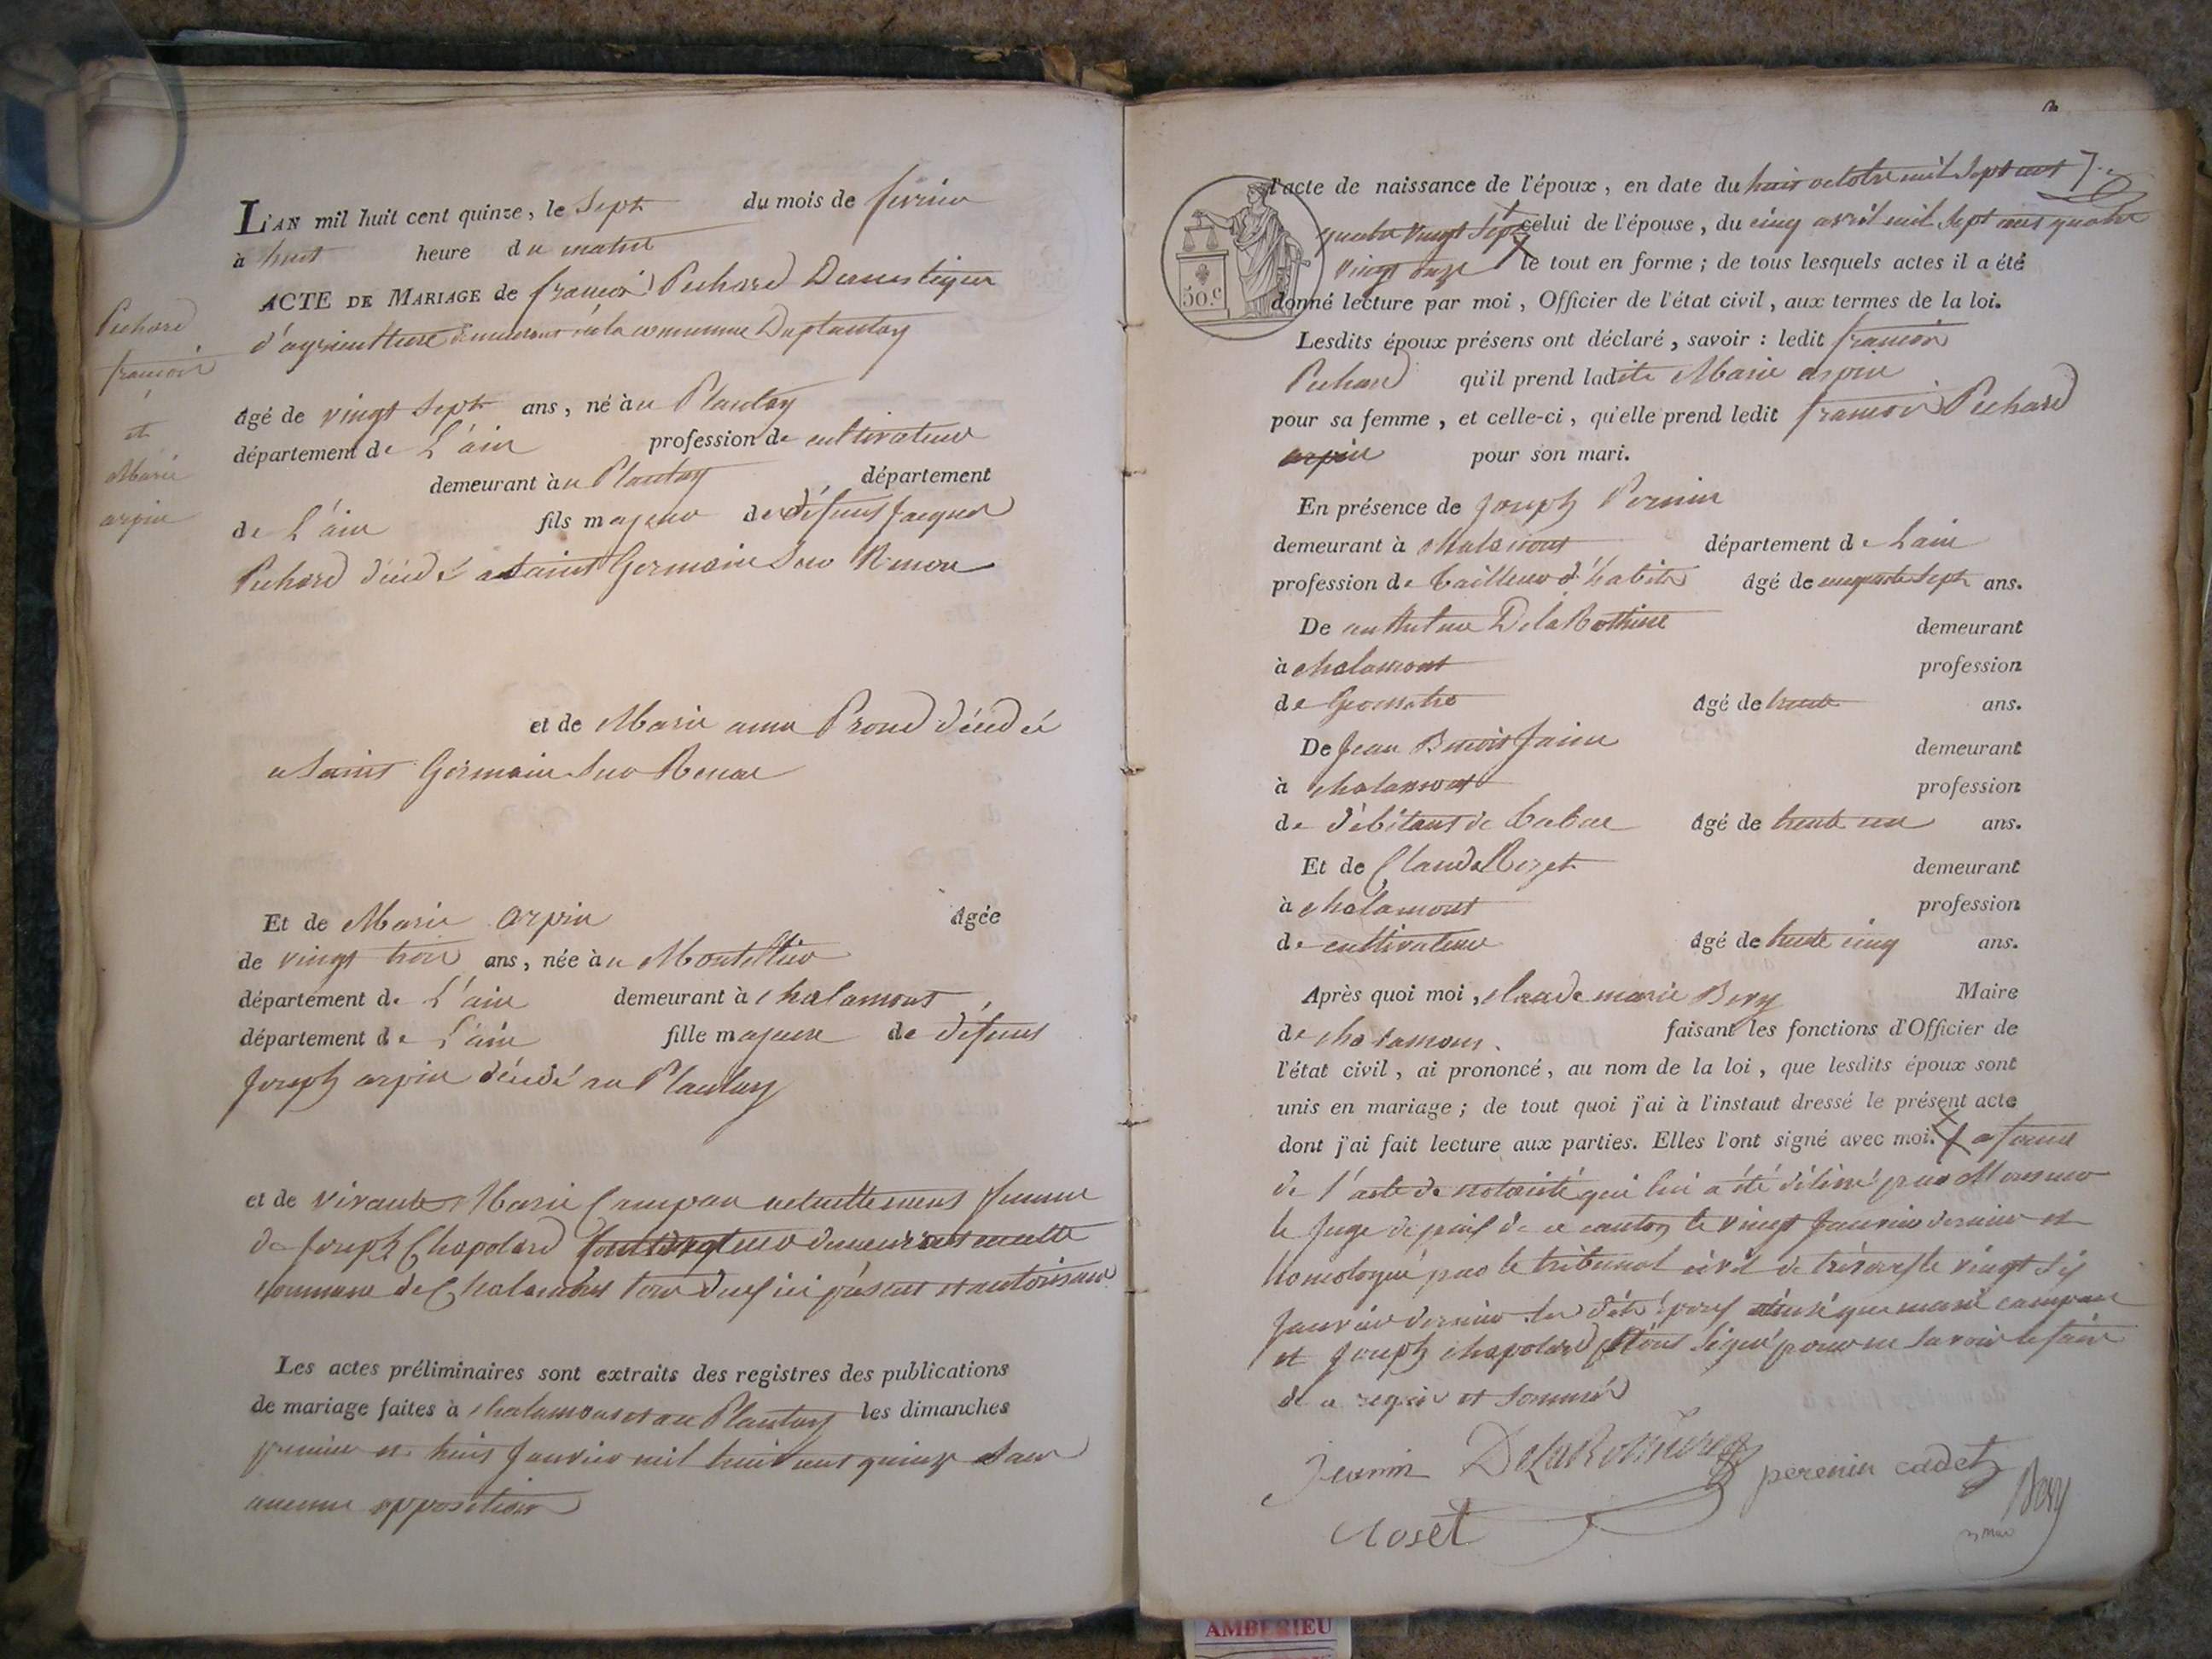 L'AN mil huit cent quinze, le Sept du mois de fevrier
à huit heure du matin
ACTE DE MARIAGE de françois Pechard Domestique
d'agriculture demeurant en la commune Duplantay
Pechard
françois
et
Marie
arpin
âgé de vingt Sept ans, né au Plantay
département de L'ain profession de cultivateur
demeurant au Plantay département
de L'ain fils majeur de défunt Jacques
Pechard décédé a Saint Germain Sur Renon
et de Marie anne Proud décédée
a Saint Germain Sur Renon
Et de Marie arpin âgée
de vingt trois ans, née au Montellier
département de L'ain demeurant à chalamont
département de L'ain fille majeure de défunt
Joseph arpin décédé au Plantay
et de vivante Marie Campan actuellement femme
de Joseph Chapolard demeurant en cette
Commune de Chalamont tous deux ici présent et autorisant
Les actes préliminaires sont extraits des registres des publications
de mariage faites à chalamont et au Plantay les dimanches
premier et huit Janvier mil huit cent quinze Sans
aucune opposition
l'acte de naissance de l'époux, en date du huit octobre mil Sept cent
quatre vingt Sept celui de l'épouse, du cinq avril mil Sept cent quatre
vingt onze le tout en forme ; de tous lesquels actes il a été
50.c donné lecture par moi, Officier de l'état civil, aux termes de la loi.
Lesdits époux présens ont déclaré, savoir : ledit françois
Pechard qu'il prend ladite Marie arpin
pour sa femme, et celle-ci, qu'elle prend ledit françois Pechard
arpin pour son mari.
En présence de Joseph Pernin
demeurant à chalamont département de Lain
profession de tailleur d'habits âgé de cinquante Sept ans.
De Delarothiere demeurant
à chalamont profession
de Geometre âgé de trente ans.
De Jean Benoit Janin demeurant
à chalamont profession
de débitant de tabac âgé de trente un ans.
Et de Claude Rozet demeurant
à chalamont profession
de cultivateur âgé de trente cinq ans.
Après quoi moi, claude marie Bory Maire
de chalamont faisant les fonctions d'Officier de
l'état civil, ai prononcé, au nom de la loi, que lesdits époux sont
unis en mariage ; de tout quoi j'ai à l'instaut dressé le présent acte
dont j'ai fait lecture aux parties. Elles l'ont signé avec moi. a forme
de l'acte de notoriété qui lui a été délivré par Monsieur
le Juge de paix de ce canton le vingt Janvier dernier et
homologué par le tribunal civil de trévoux le vingt Six
Janvier dernier les dits époux ainsi que marie campan
et Joseph chapolard n'ont Signé pour ne Savoir le faire
de ce requis et Sommés
Jeannin Delarothiere perenin cadet
Roset Bory
maire
AMBERIEU